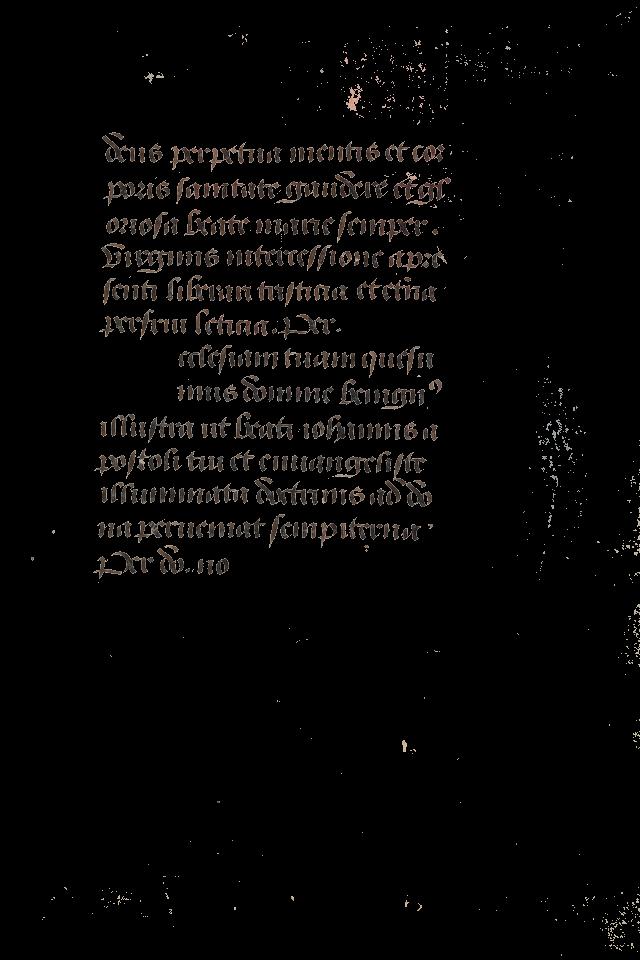 deus perpetua mentis et cor
poris sanitate gaudere et gl
oriosa beate marie semper.
Virginis intercessione a pre
senti liberari tristicia et etna
perfrui leticia. Per.
cclesiam tuam quesu
mus domine benignꝰ
illustra ut beati iohannis a
postoli tui et euuangeliste
illuminata doctrinis ad do
na perueniat sempiterna.
Per do. no